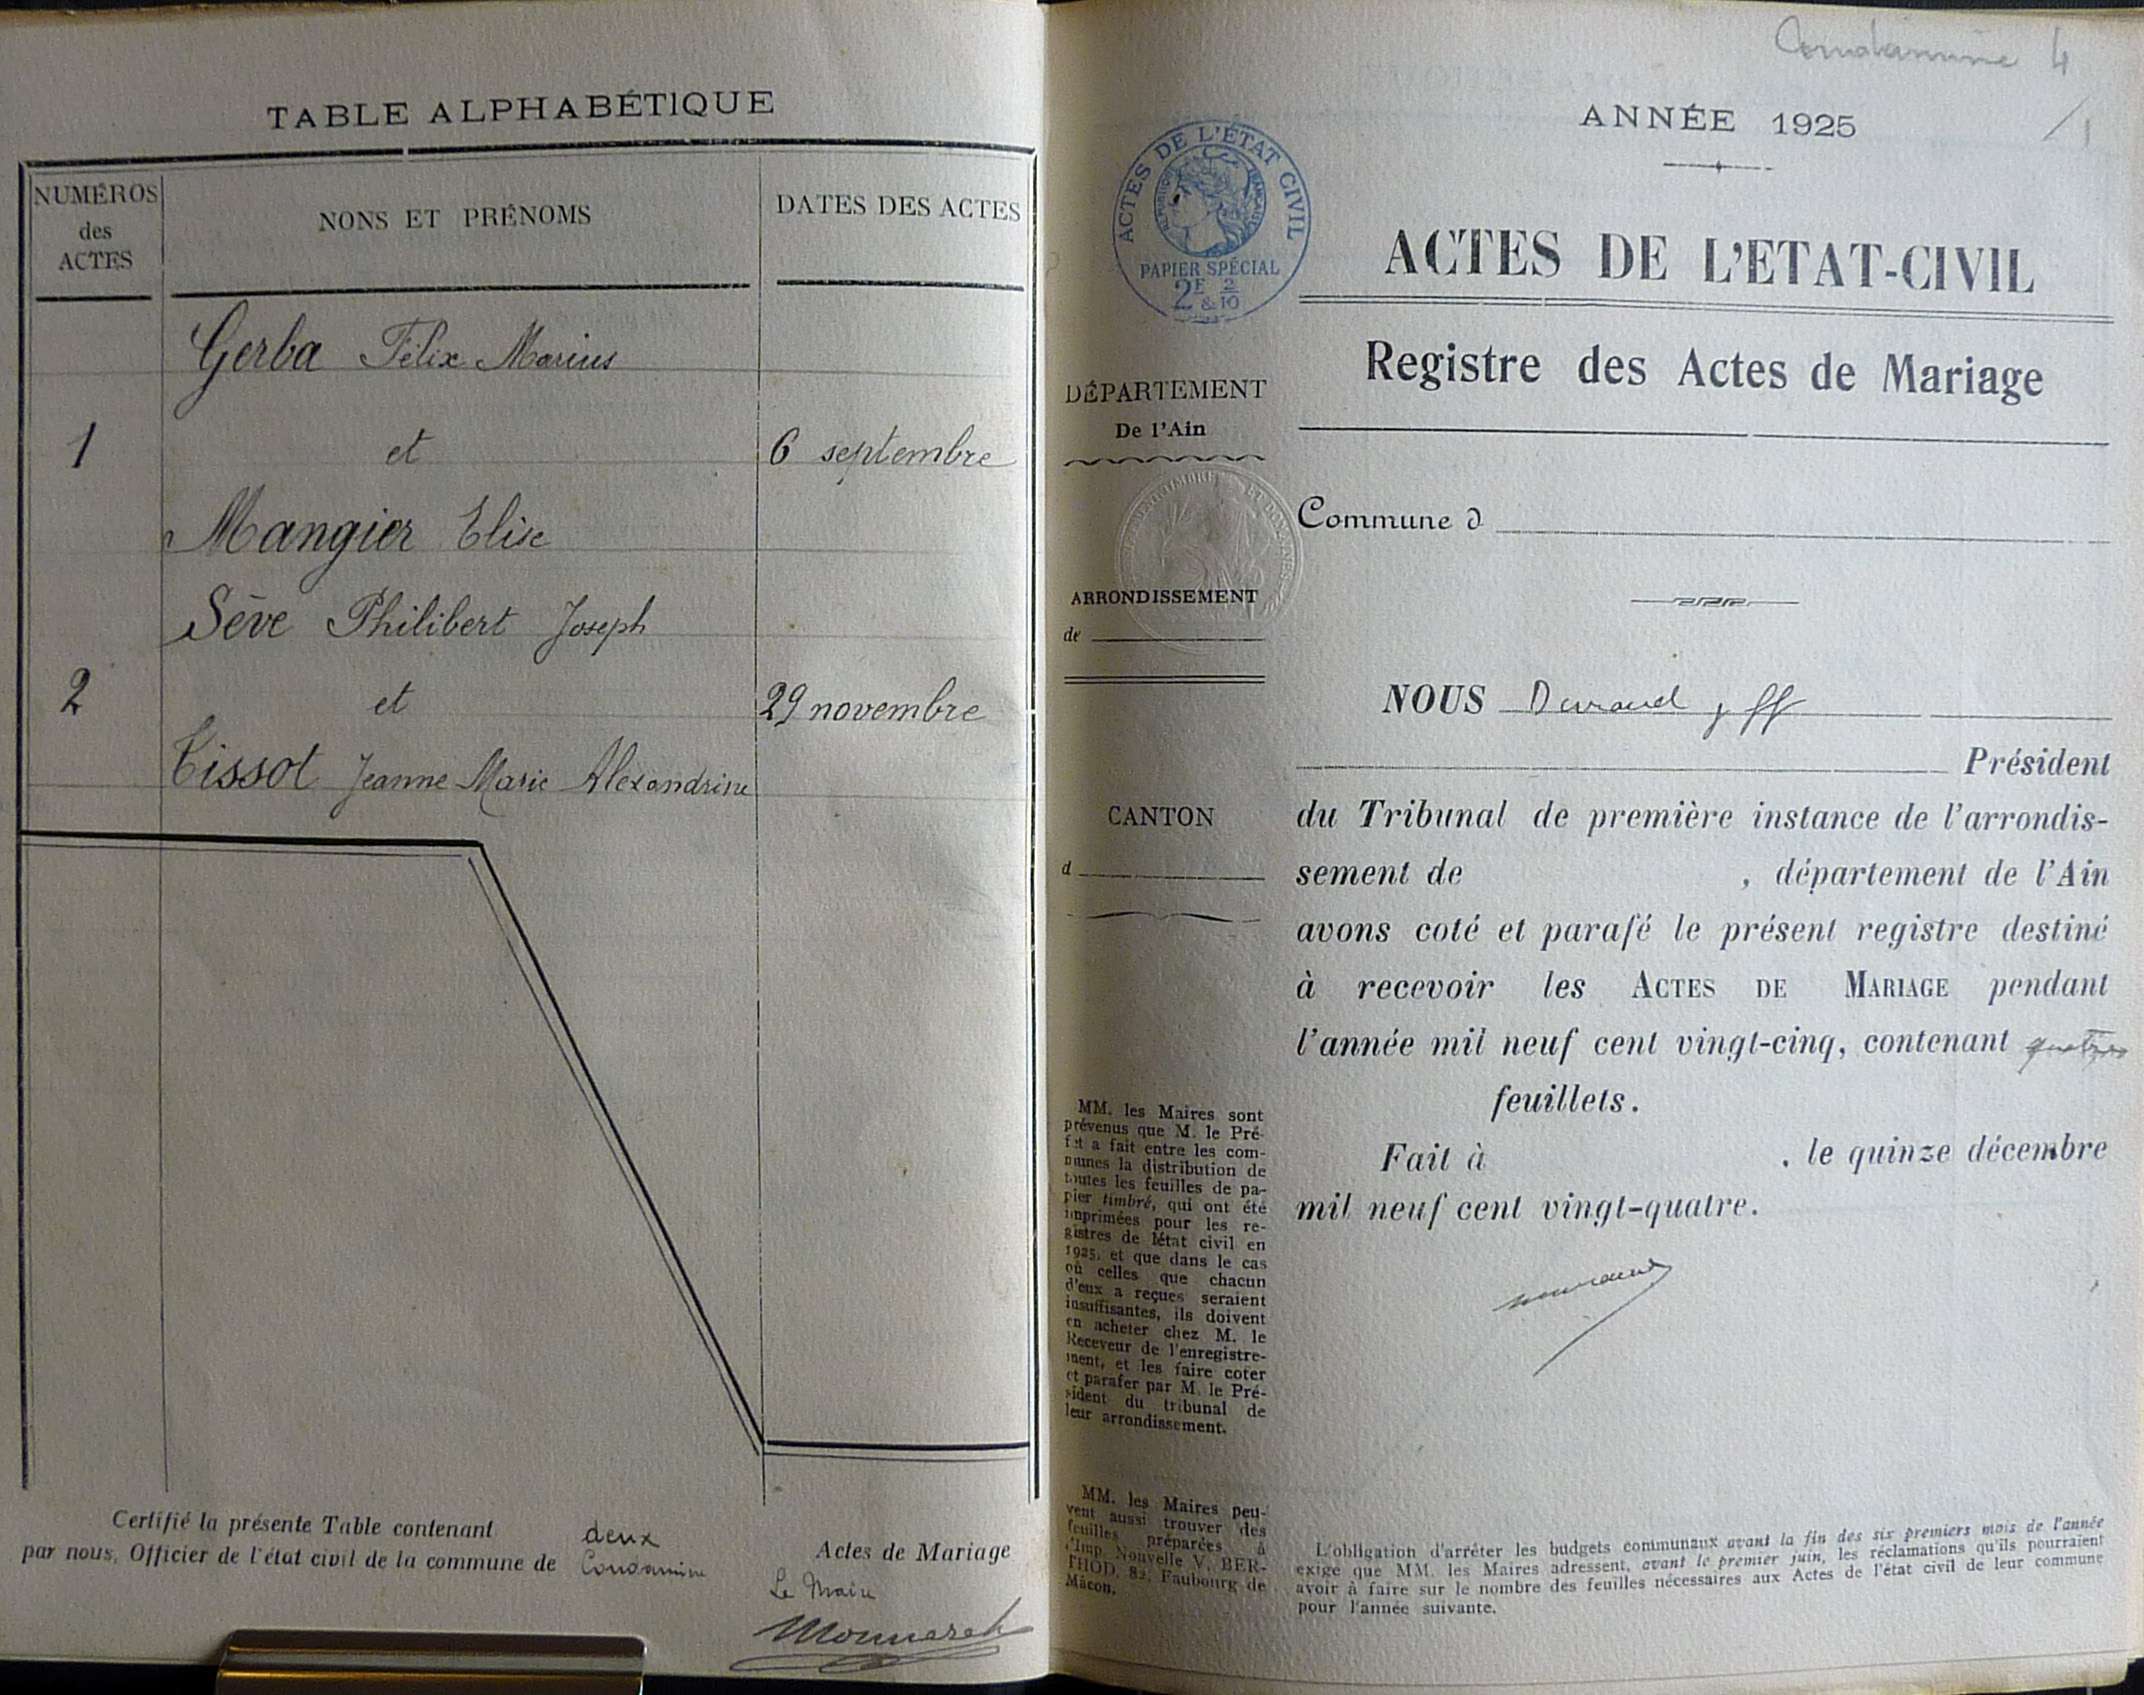 TABLE ALPHABÉTIQUE
NUMÉROS
des
ACTES
NONS ET PRÉNOMS
DATES DES ACTES
Gerba Félix Marius
1 et 6 septembre
Mangier Elise
Sève Philibert Joseph
2 et 29 novembre
Tissot Jeanne Marie Alexandrine
Certifié la présente Table contenant deux Actes de Mariage
par nous, Officier de l'état civil de la commune de Condamine
Le Maire
Condamine 4
ANNÉE 1925
/1
ACTES DE L'ÉTAT CIVIL
RÉPUBLIQUE FRANÇAISE
PAPIER SPÉCIAL
2F & 2/10
ACTES DE L'ETAT-CIVIL
Registre des Actes de Mariage
DÉPARTEMENT
De l'Ain
Commune d
ARRONDISSEMENT
de
CANTON
d
NOUS Durand
Président
du Tribunal de première instance de l'arrondis-
sement de , département de l'Ain
avons coté et parafé le présent registre destiné
à recevoir les ACTES DE MARIAGE pendant
l'année mil neuf cent vingt-cinq, contenant quatre
feuillets.
Fait à , le quinze décembre
mil neuf cent vingt-quatre.
MM. les Maires sont
prévenus que M. le Pré-
fet a fait entre les com-
munes la distribution de
toutes les feuilles de pa-
pier timbré, qui ont été
imprimées pour les re-
gistres de l'état civil en
1925, et que dans le cas
où celles que chacun
d'eux a reçues seraient
insuffisantes, ils doivent
en acheter chez M. le
Receveur de l'enregistre-
ment, et les faire coter
et parafer par M. le Pré-
sident du tribunal de
leur arrondissement.
MM. les Maires peu-
vent aussi trouver des
feuilles préparées à
l'Imp. Nouvelle V. BER-
THOD, 82, Faubourg de
Mâcon.
L'obligation d'arrêter les budgets communaux avant la fin des six premiers mois de l'année
exige que MM. les Maires adressent, avant le premier juin, les réclamations qu'ils pourraient
avoir à faire sur le nombre des feuilles nécessaires aux Actes de l'état civil de leur commune
pour l'année suivante.